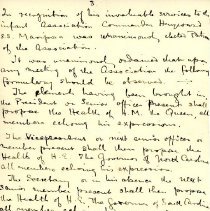 3
In recognition of his invaluable services to the
infant Association, Commander Haywood
was unanimously elected Patron
of the Association.
It was unanimously ordained that upon
any meeting of the Association the following
formula should be observed.
The element having been brought in,
the President or Senior officer present shall
propose the Health of H.M. the Queen, all
members echoing his expression.
The Vicepresident or next senior officer or
member present shall then propose the
Health of H.E. The Governor of North Carolina
all members echoing his expression.
The Secretary or in his absence the next
Senior member present shall then propose
the Health of H.E. the Governor of South Carolina
all